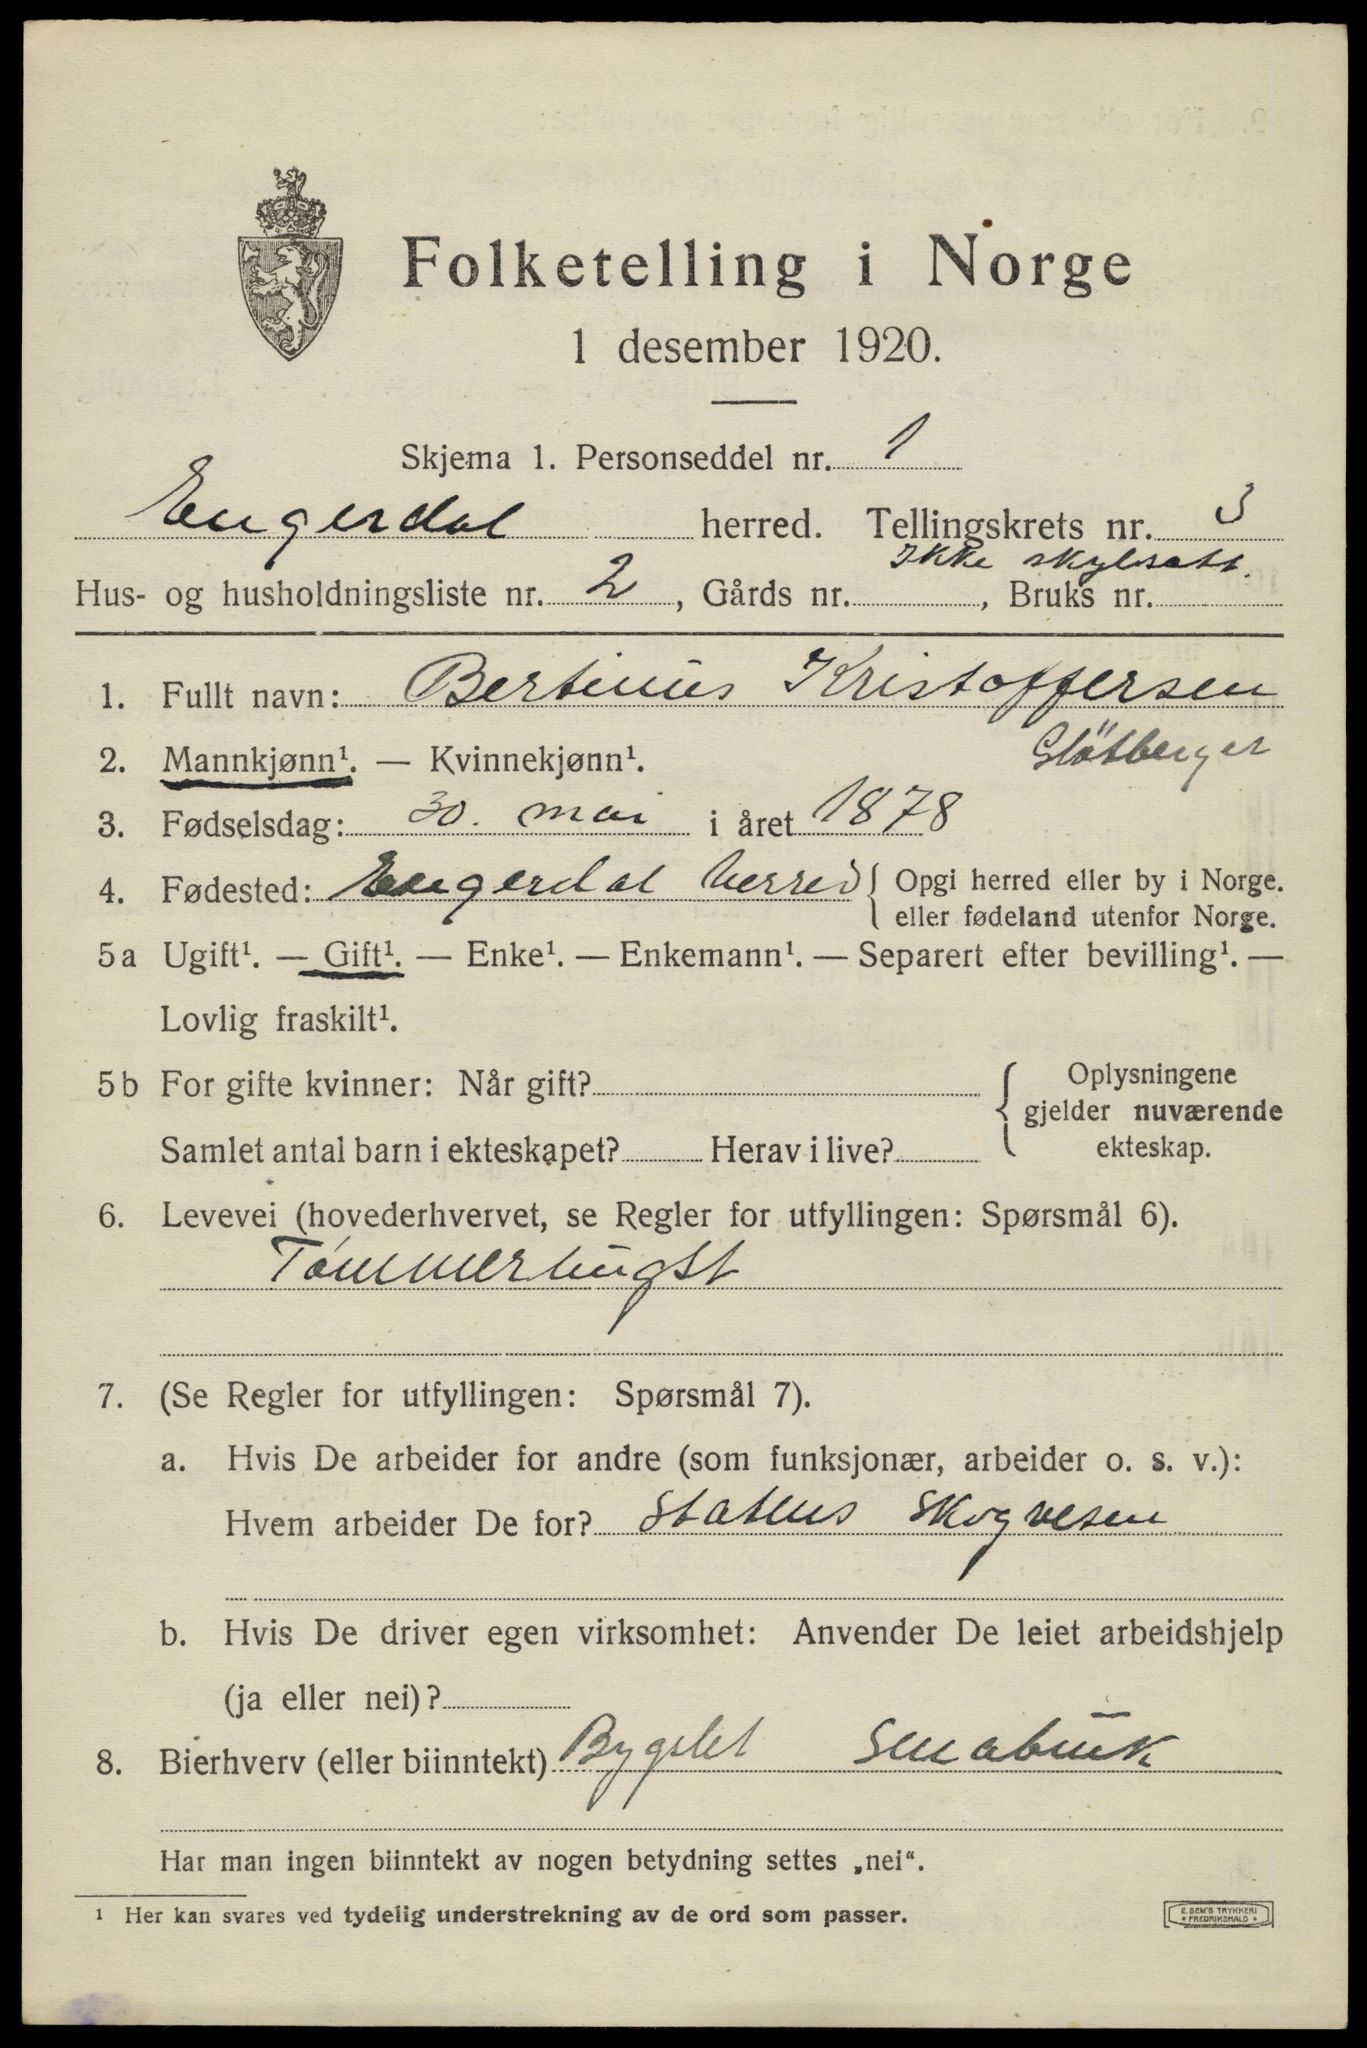 Folketelling i Norge
1 desember 1920.
Skjema 1. Personseddel nr. 1
Engerdal herred. Tellingskrets nr. 3
Ikke skylsatt.
Hus- og husholdningsliste nr. 2, Gårds nr. , Bruks nr.
1. Fullt navn: Bertinius Kristoffersen
Slötberger
2. Mannkjønn¹. — Kvinnekjønn¹.
3. Fødselsdag: 30. mai i året 1878
4. Fødested: Engerdal herred { Opgi herred eller by i Norge.
eller fødeland utenfor Norge.
5a Ugift¹. — Gift¹. — Enke¹. — Enkemann¹. — Separert efter bevilling¹. —
Lovlig fraskilt¹.
5b For gifte kvinner: Når gift?
Samlet antal barn i ekteskapet? Herav i live?
{ Oplysningene
gjelder nuværende
ekteskap.
6. Levevei (hovederhvervet, se Regler for utfyllingen: Spørsmål 6).
Tømmerhugst
7. (Se Regler for utfyllingen: Spørsmål 7).
a. Hvis De arbeider for andre (som funksjonær, arbeider o. s. v.):
Hvem arbeider De for? Statens Skogvesen
b. Hvis De driver egen virksomhet: Anvender De leiet arbeidshjelp
(ja eller nei)?
8. Bierhverv (eller biinntekt) Bygslet Smabruk
Har man ingen biinntekt av nogen betydning settes „nei“.
¹ Her kan svares ved tydelig understrekning av de ord som passer.
E. SEM'S TRYKKERI
* FREDRIKSHALD *